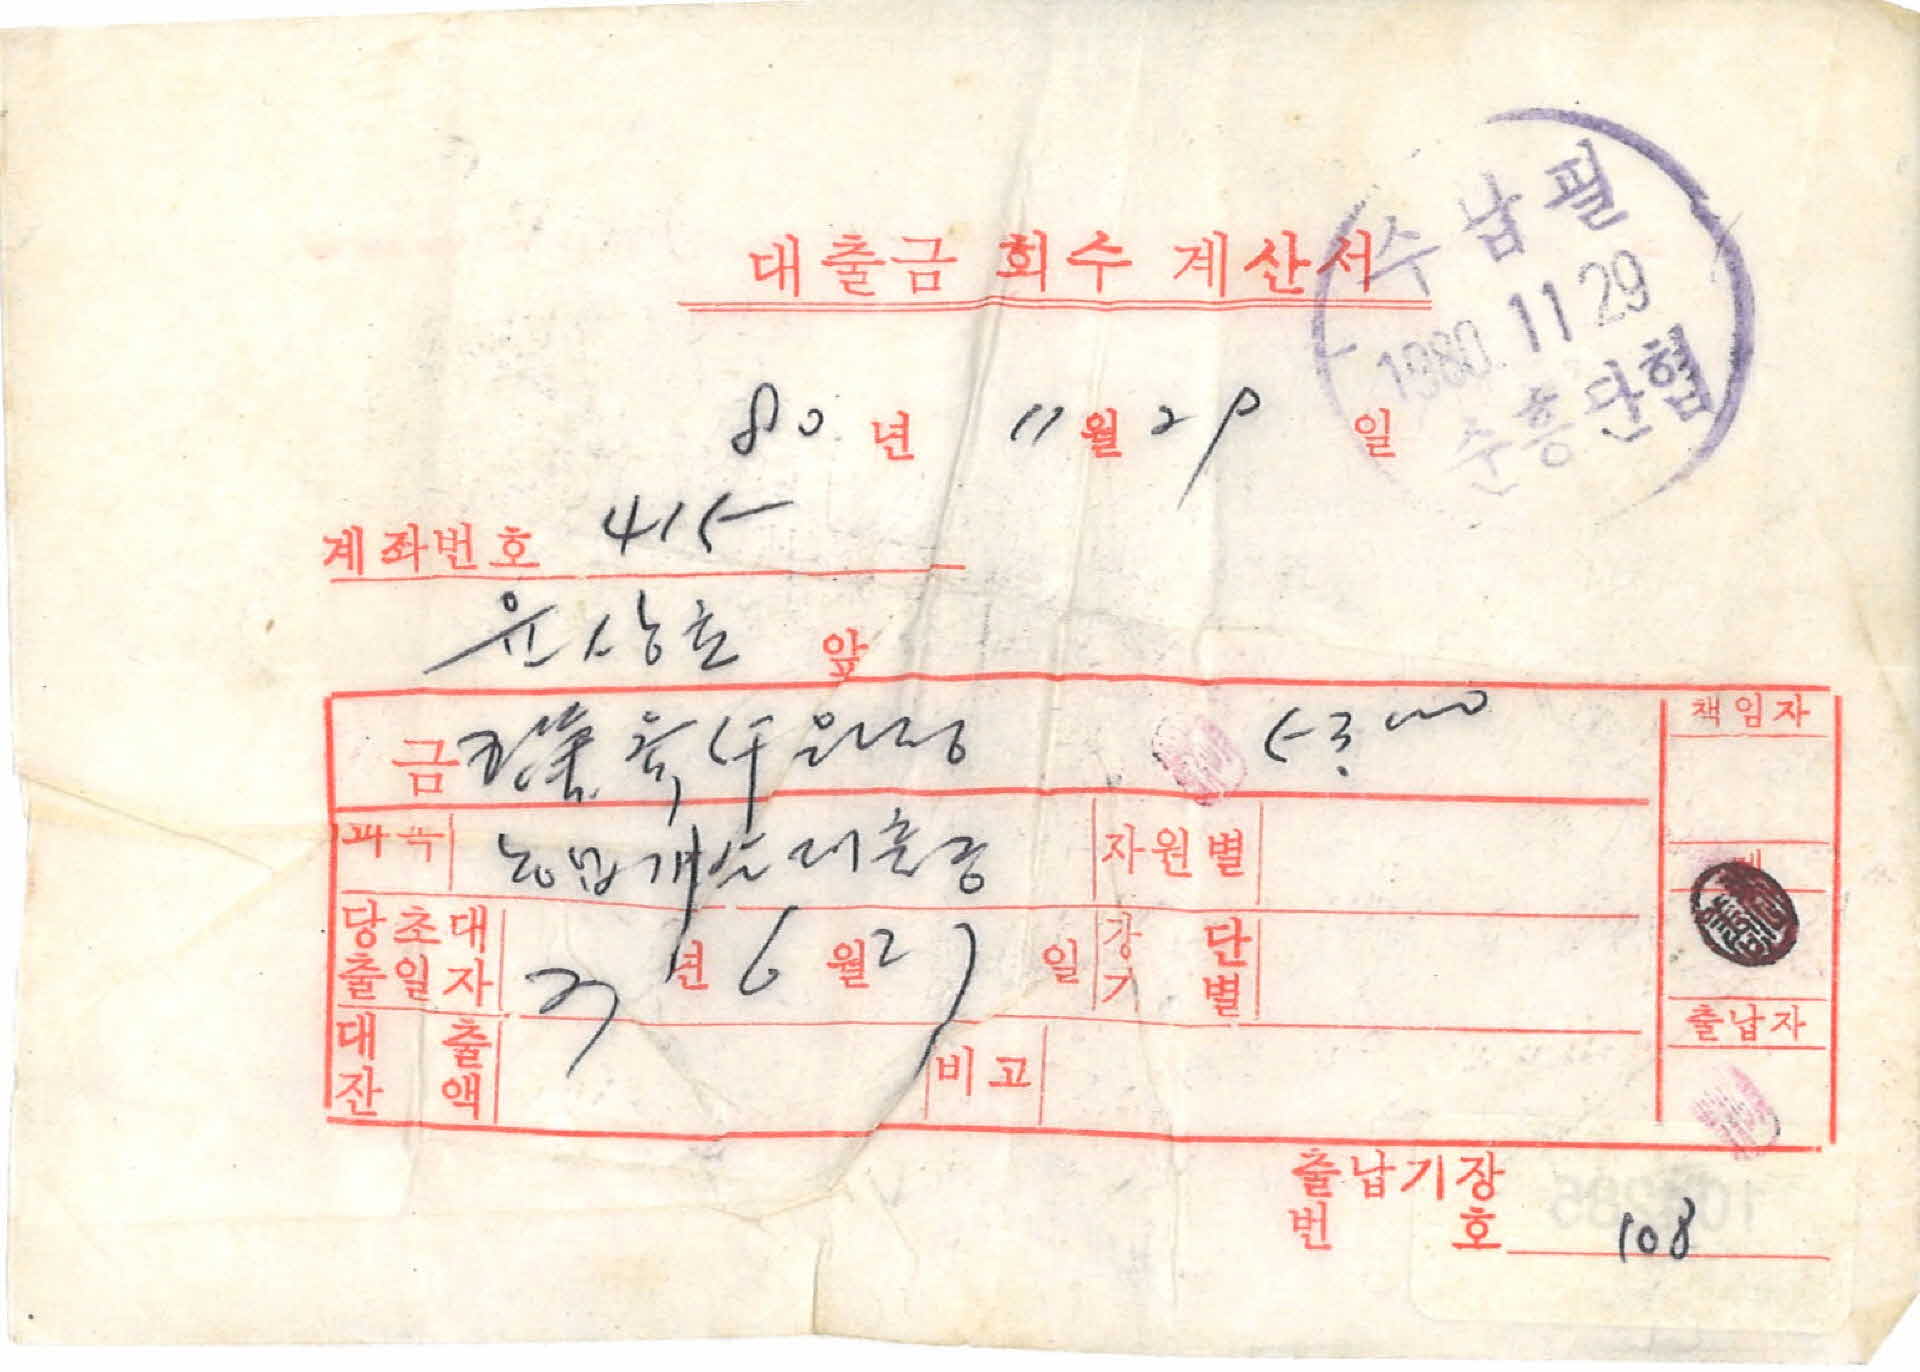 대출금 회수 계산서
수납필
1980. 11 29
순흥단협
80 년 11 월 29 일
계좌번호 415
윤상호 앞
금 원정 53,000
책임자
과목 농업개발대출금 자원별
당초대출일자 년 6 월 27 일 장단기별
대출잔액 비고
출납자
출납기장번호 108